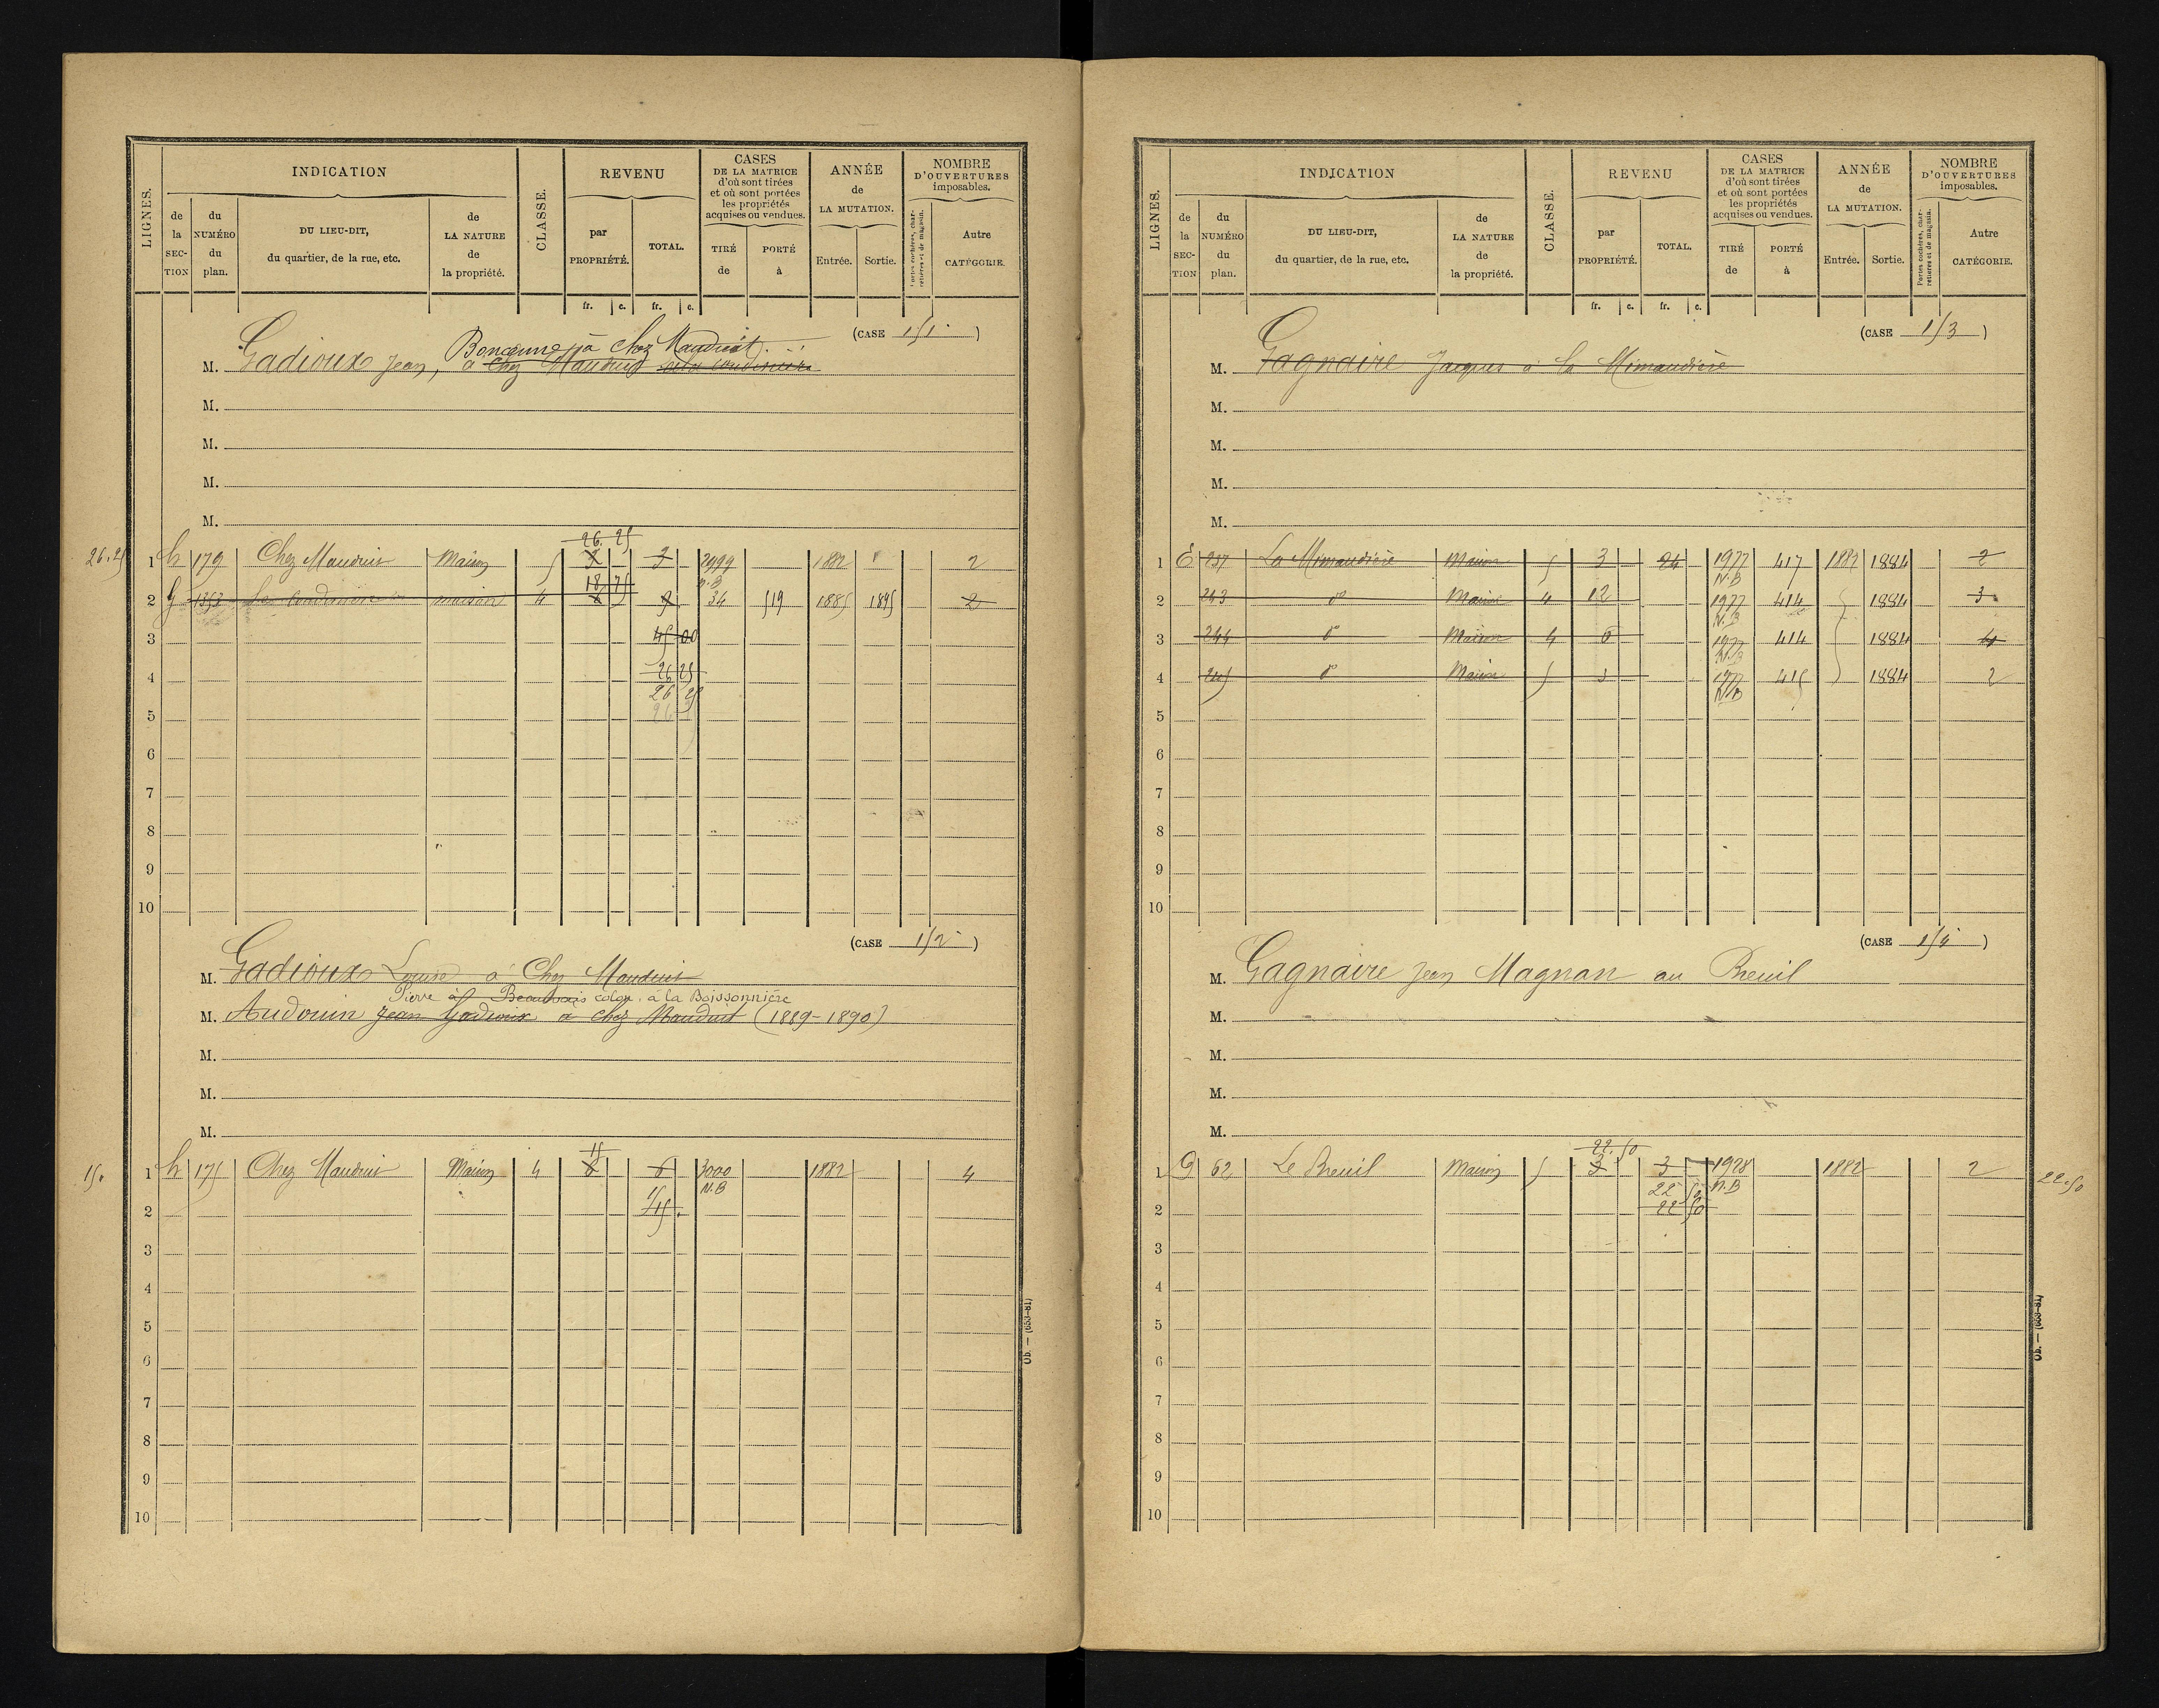 LIGNES.
INDICATION
de la SECTION
du NUMÉRO du plan.
DU LIEU-DIT, du quartier, de la rue, etc.
de LA NATURE de la propriété.
CLASSE.
REVENU
par PROPRIÉTÉ.
TOTAL.
CASES DE LA MATRICE d'où sont tirées et où sont portées les propriétés acquises ou vendues.
TIRÉ de
PORTÉ à
ANNÉE de LA MUTATION.
Entrée.
Sortie.
NOMBRE D'OUVERTURES imposables.
Portes cochères, charretières et de magasin.
Autre CATÉGORIE.
fr. c. fr. c.
(CASE 151)
à chez Mauduit
M. Gadioux Jean, à Chez Mauduit
M.
M.
M.
M.
26. 25
26.25 1 h 179 Chez Mauduit Maison 5 3 3 2999 1882 2
N.B
18 75
2 g 1353 maison 4 6 9 34 519 1885 1895 2
3 45 00
4 26 25
26 25
5
6
7
8
9
10
(CASE 152)
M. Gadioux Louise à Chez Mauduit
Pierre à Beauvais colon à la Boissonnière
M. Audouin Jean Gadioux à chez Mauduit (1889-1890)
M.
M.
M.
15
15. 1 h 175 Chez Mauduit Maison 4 6 6 3000 1882 4
N.B
2 15
3
4
5
6
7
8
9
10
Ob. — (653-81)
LIGNES.
INDICATION
de la SECTION
du NUMÉRO du plan.
DU LIEU-DIT, du quartier, de la rue, etc.
de LA NATURE de la propriété.
CLASSE.
REVENU
par PROPRIÉTÉ.
TOTAL.
CASES DE LA MATRICE d'où sont tirées et où sont portées les propriétés acquises ou vendues.
TIRÉ de
PORTÉ à
ANNÉE de LA MUTATION.
Entrée.
Sortie.
NOMBRE D'OUVERTURES imposables.
Portes cochères, charretières et de magasin.
Autre CATÉGORIE.
fr. c. fr. c.
(CASE 153)
M. Gagnaire Jacques à la Mimaudière
M.
M.
M.
M.
1 E 237 La Mimaudière Maison 5 3 24 1977 417 1882 1884 2
N.B
2 243 do Maison 4 12 1977 414 1884 3
N.B
3 244 do Maison 4 6 1977 414 1884 4
N.B
4 245 do Maison 5 3 1977 415 1884 2
N.B
5
6
7
8
9
10
(CASE 154)
M. Gagnaire Jean Magnan au Breuil
M.
M.
M.
M.
22. 50
1 G 62 Le Breuil Maison 5 3 3 1978 1882 2 22.50
22 50 N.B
2 22 50
3
4
5
6
7
8
9
10
Ob. — (653-81)